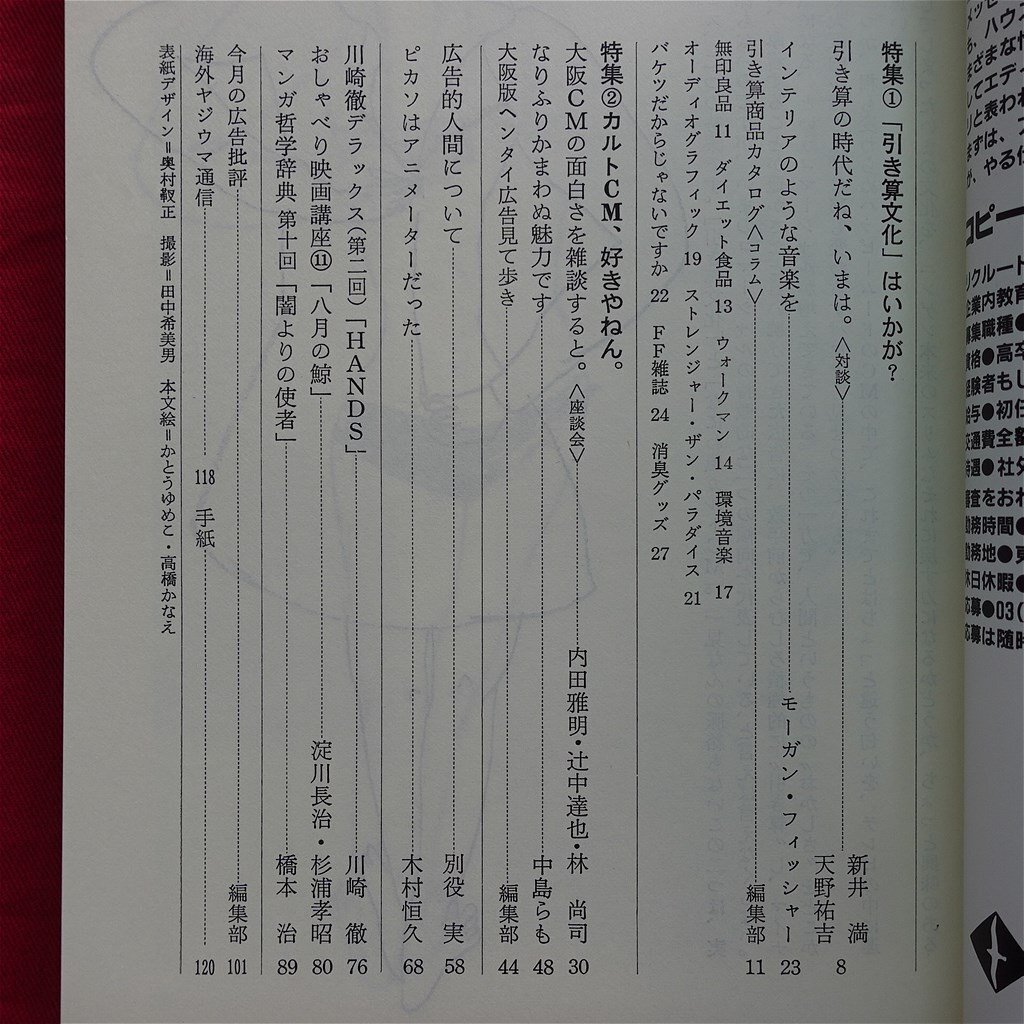 特集①「引き算文化」はいかが?
引き算の時代だね、いまは。〈対談〉 新井 満 天野祐吉 8
インテリアのような音楽を モーガン・フィッシャー 23
引き算商品カタログ〈コラム〉 編集部 11
無印良品 11 ダイエット食品 13 ウォークマン 14 環境音楽 17
オーディオグラフィック 19 ストレンジャー・ザン・パラダイス 21
バケツだからじゃないですか 22 FF雑誌 24 消臭グッズ 27
特集②カルトCM、好きやねん。
大阪CMの面白さを雑談すると。〈座談会〉 内田雅明・辻中達也・林 尚司 30
なりふりかまわぬ魅力です 中島らも 48
大阪版ヘンタイ広告見て歩き 編集部 44
広告的人間について 別役 実 58
ピカソはアニメーターだった 木村恒久 68
川崎徹デラックス(第二回)「HANDS」 川崎 徹 76
おしゃべり映画講座⑪「八月の鯨」 淀川長治・杉浦孝昭 80
マンガ哲学辞典 第十回「闇よりの使者」 橋本 治 89
今月の広告批評 編集部 101
海外ヤジウマ通信 118 手紙 120
表紙デザイン=奥村靫正 撮影=田中希美男 本文絵=かとうゆめこ・高橋かなえ
コピー